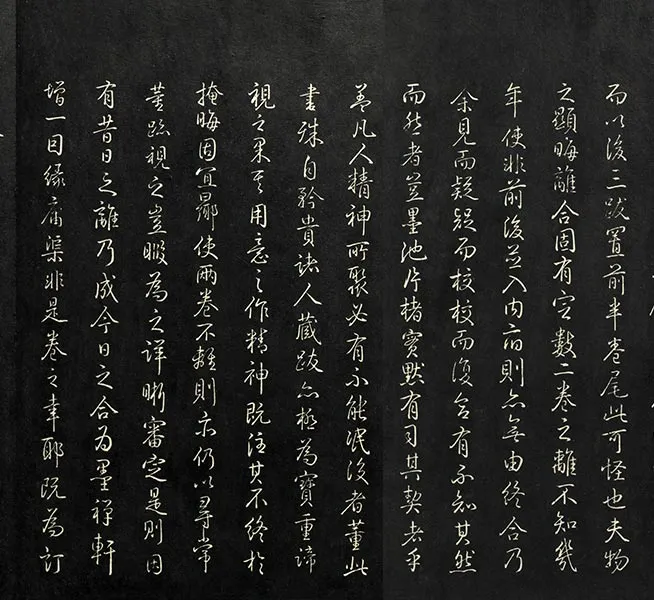 而以後三跋置前半卷尾此可怪也夫物
之顯晦離合固有定數二卷之離不知幾
年使非前後並入内府則亦無由終合乃
余見而疑疑而校校而復合有不知其然
而然者豈墨池片楮寶默有司其契者乎
蓋凡人精神所聚必有不能泯沒者董此
書殊自矜貴諸人藏跋亦極為寶重諦
視之果其用意之作精神既注其不終於
掩晦固宜鄙使兩卷不離則亦仍以尋常
董跡視之豈暇為之詳晰審定是則因
有昔日之離乃成今日之合為墨禪軒
增一因緣庸渠非是卷之幸耶既為訂